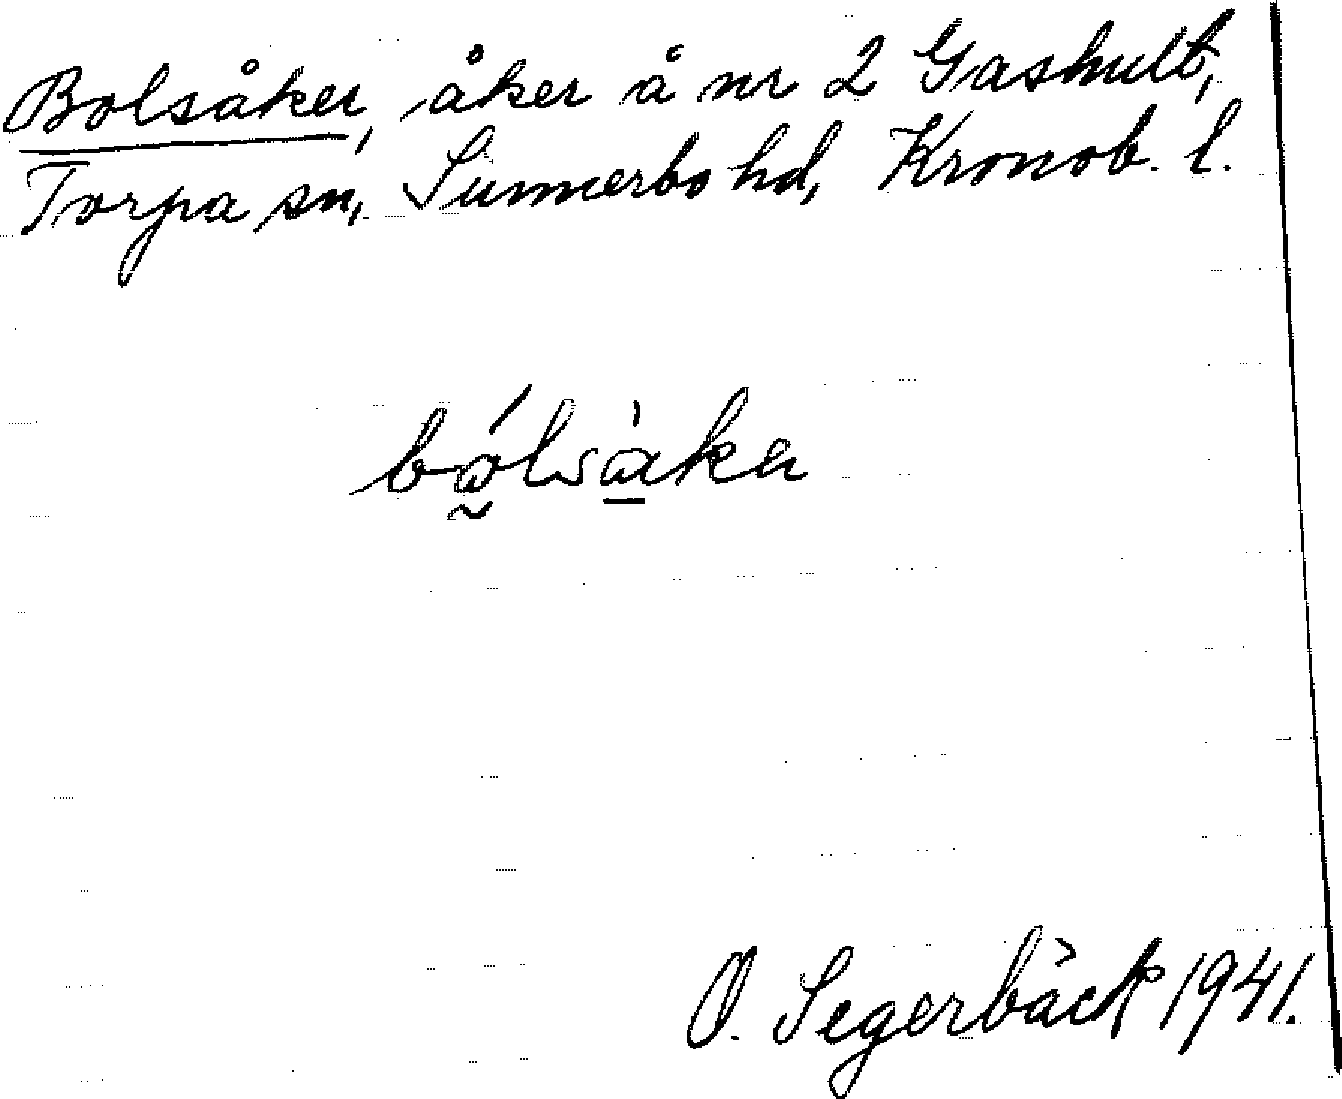 Bolsåker, åker å nr 2 Gashult,
Torpa sn, Sunnerbo hd, Kronob. l.
O. Segerbäck 1941.